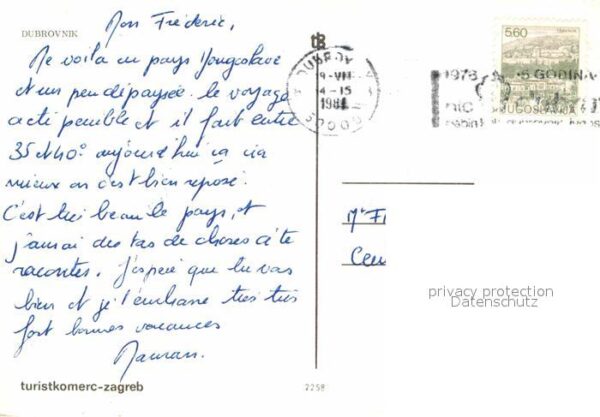 DUBROVNIK
Mon Frédéric,
Me voilà en pays Yougoslave
et un peu dépaysée. le voyage
a été pénible et il fait entre
35 et 40° aujourd'hui ça va
mieux on s'est bien reposé.
C'est très beau le pays, et
j'aurai des tas de choses à te
raconter. J'espère que tu vas
bien et je t'embrasse très très
fort bonnes vacances
Maman.
turistkomerc-zagreb
2258
5.60
JUGOSLAVIJA
4-15
1978
5 GODINA
Mr F
privacy protection
Datenschutz